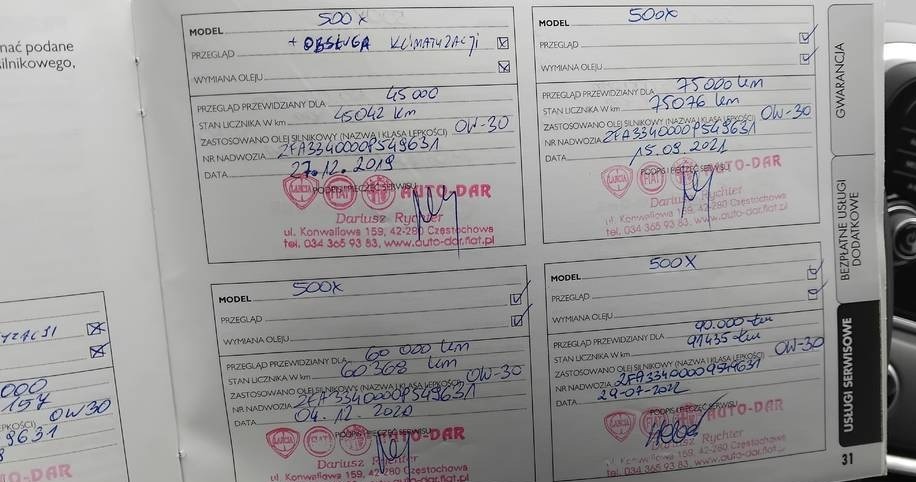 nać podane
silnikowego,
MODEL 500X
PRZEGLĄD + OBSŁUGA KLIMATYZACJI
WYMIANA OLEJU
PRZEGLĄD PRZEWIDZIANY DLA 45 000
STAN LICZNIKA W km 45042 km
ZASTOSOWANO OLEJ SILNIKOWY (NAZWA I KLASA LEPKOŚCI) 0W-30
NR NADWOZIA ZFA3340000P549631
DATA 27.12.2019
PODPIS I PIECZĘĆ SERWISU
LANCIA FIAT AUTO-DAR
Dariusz Rychter
ul. Konwaliowa 159, 42-280 Częstochowa
tel. 034 365 93 83, www.auto-dar.fiat.pl
MODEL 500X
PRZEGLĄD
WYMIANA OLEJU
PRZEGLĄD PRZEWIDZIANY DLA 75000 km
STAN LICZNIKA W km 75076 km
ZASTOSOWANO OLEJ SILNIKOWY (NAZWA I KLASA LEPKOŚCI) 0W-30
NR NADWOZIA ZFA3340000P549631
DATA 15.09.2021
PODPIS I PIECZĘĆ SERWISU
LANCIA FIAT AUTO-DAR
Dariusz Rychter
ul. Konwaliowa 159, 42-280 Częstochowa
tel. 034 365 93 83, www.auto-dar.fiat.pl
MODEL 500X
PRZEGLĄD
WYMIANA OLEJU
PRZEGLĄD PRZEWIDZIANY DLA 60 000 km
STAN LICZNIKA W km 60368 km
ZASTOSOWANO OLEJ SILNIKOWY (NAZWA I KLASA LEPKOŚCI) 0W-30
NR NADWOZIA ZFA3340000P549631
DATA 04.12.2020
PODPIS I PIECZĘĆ SERWISU
LANCIA FIAT AUTO-DAR
Dariusz Rychter
ul. Konwaliowa 159, 42-280 Częstochowa
MODEL 500X
PRZEGLĄD
WYMIANA OLEJU
PRZEGLĄD PRZEWIDZIANY DLA 90.000 km
STAN LICZNIKA W km 91435 km
ZASTOSOWANO OLEJ SILNIKOWY (NAZWA I KLASA LEPKOŚCI) 0W-30
NR NADWOZIA ZFA3340000P549631
DATA 29-07-2022
PODPIS I PIECZĘĆ SERWISU
LANCIA FIAT AUTO-DAR
Dariusz Rychter
ul. Konwaliowa 159, 42-280 Częstochowa
tel. 034 365 93 83, www.auto-dar.fiat.pl
TYZACJI
000
157
0W30
9631
O-DAR
GWARANCJA
BEZPŁATNE USŁUGI
DODATKOWE
USŁUGI SERWISOWE
31